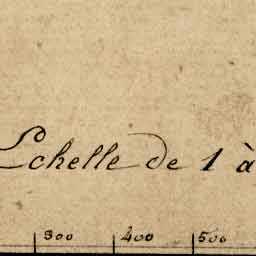 Echelle de 1 à
300 400 500